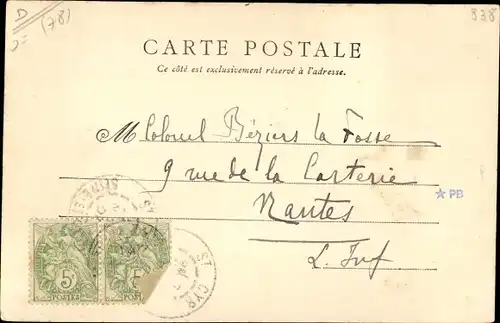 D (78)
838
CARTE POSTALE
Ce côté est exclusivement réservé à l'adresse.
M Colonel Béziers La Fosse
9 rue de la
Nantes
L. Inf
PB
5 5
POSTES
ST CYR